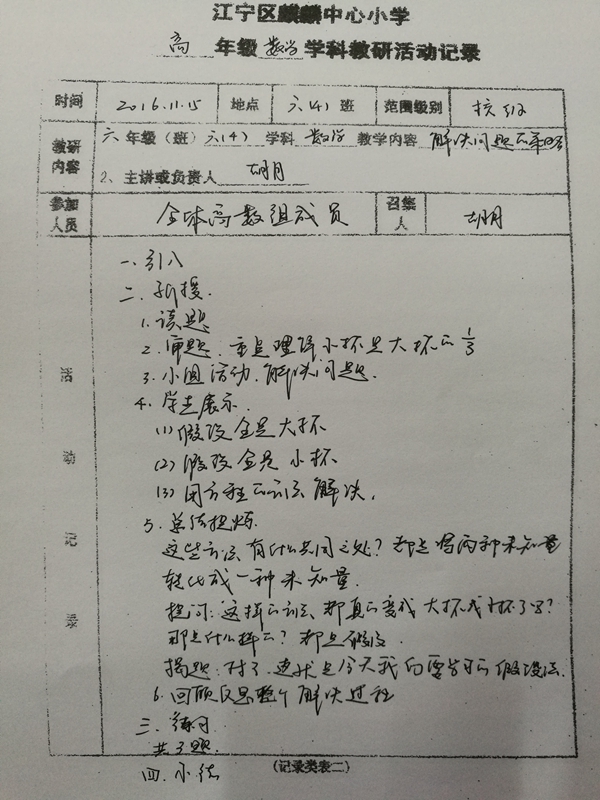 江宁区麒麟中心小学
高 年级 数学 学科教研活动记录
时间 2016.11.15 地点 六(4)班 范围级别 校级
教研内容 六年级（班）六(4) 学科 数学 教学内容 解决问题的策略
2、主讲或负责人 胡月
参加人员 全体高数组成员 召集人 胡月
活动记录
一.引入
二.新授.
1.读题
2.审题.重点理解小杯是大杯的1/3
3.小组活动.解决问题.
4.学生展示.
(1)假设全是大杯
(2)假设全是小杯
(3)用方程的方法解决.
5.总结提炼.
这些方法有什么共同之处？都是将两种未知量
转化成一种未知量.
提问：这样的方法,都真的变成大杯或小杯了吗？
那是什么样的？都是假设.
揭题：对了,这就是今天我们要学习的假设法.
6.回顾反思整个解决过程
三.练习.
共3题.
四.小结
(记录类表二)